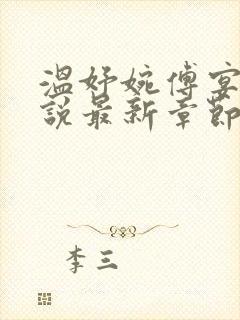 温妤婉傅宴
说最新章节
李三